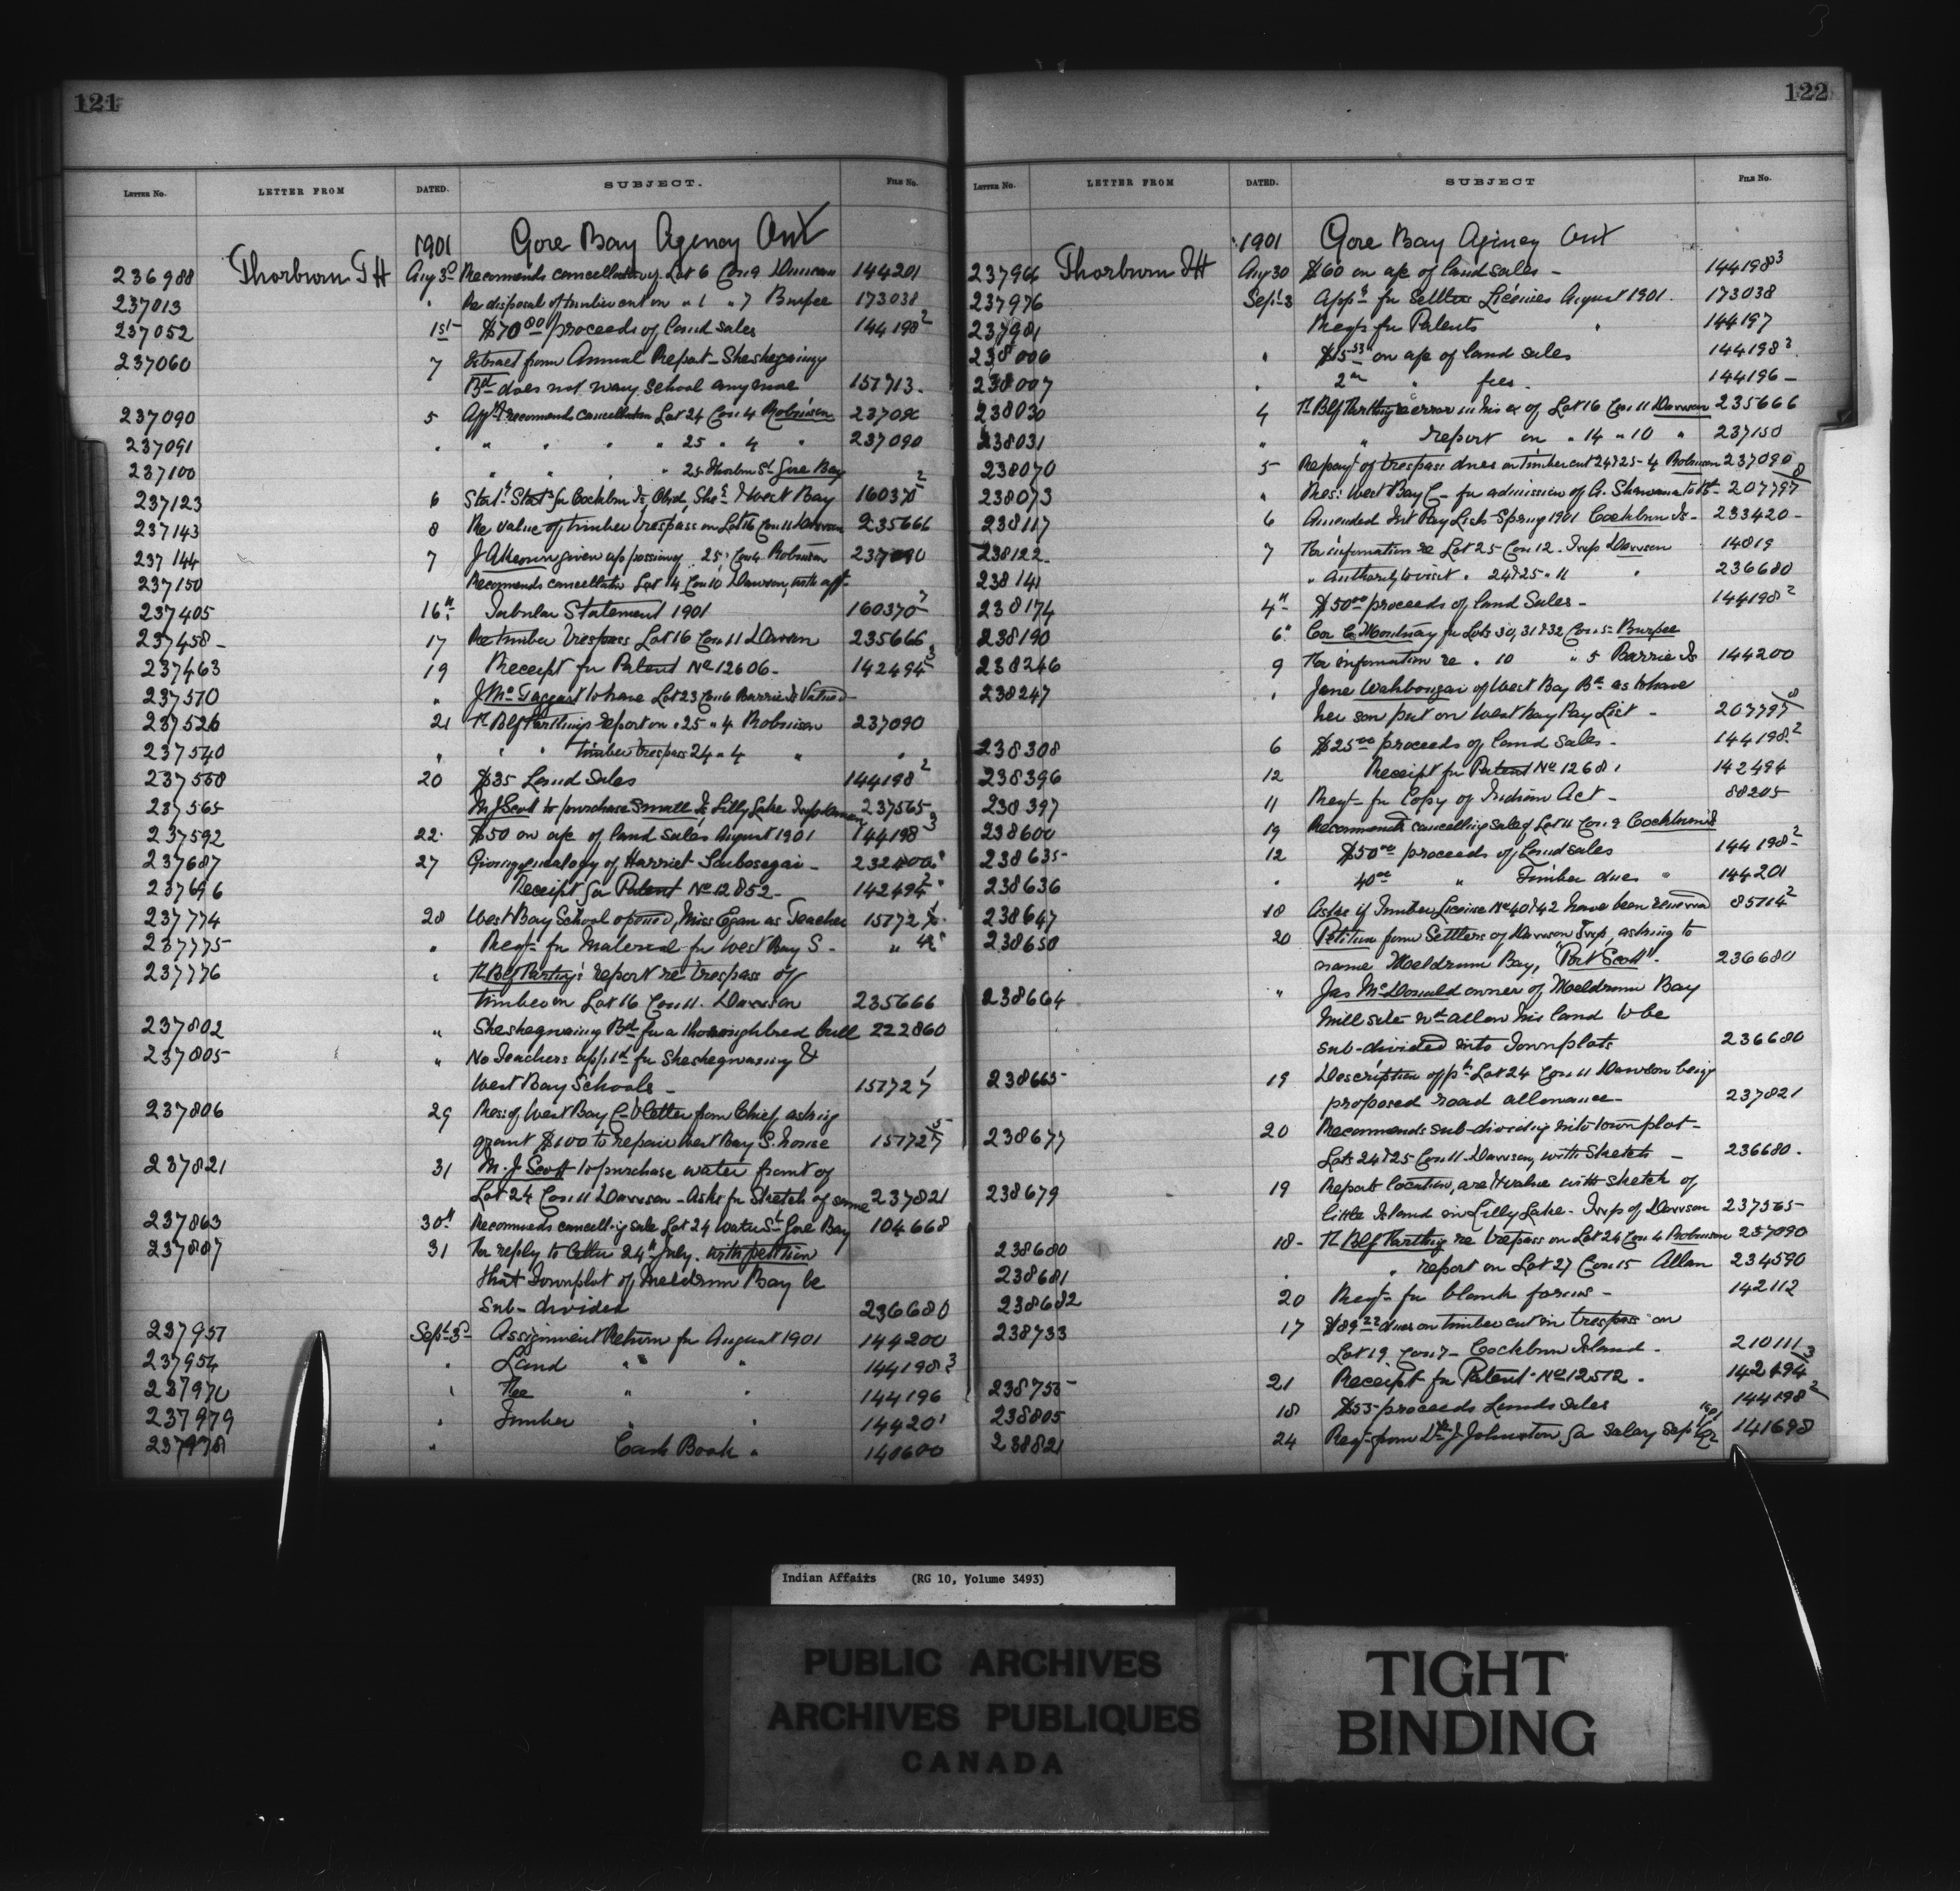 121
LETTER NO. LETTER FROM DATED. SUBJECT. FILE No.
1901 Gore Bay Agency Ont
236988 Thorburn J H Aug 3rd Recomends cancellation of Lot 6 Con 9 144201
237013 " Re disposal of timber cut on " 1 " 7 Burpee 173038
237052 1st $70.00 proceeds of land sales 144198 2
237060 7 Extract from Annual Report - Sheshegwaing
Bd does not want School any more 151713-
237090 5 recomends cancellation Lot 24 Con 4 Robinson 237090
237091 " " " " " 25 " 4 " 237090
237100 " " " " 25 Thorburn St Gore Bay
237123 6 Cockburn Is, Obid, Shes & West Bay 160370 2
237143 8 Re value of timber trespass on Lot 16 Con 11 Dawson 235666
237144 7 given up possession 25, Con 4 Robinson 237090
237150 Recomends cancellation Lot 14 Con 10 Dawson, with aff
237405 16th Tabular Statement 1901 160370 7
237458- 17 Re timber trespass Lot 16 Con 11 Dawson 235666
237463 19 Receipt for Patent No 12606- 142494 3
237510 " J McTaggart to have Lot 23 Con 6 Barrie Is Valued
237526 21 Th Blf Parthing's report on " 25 " 4 Robinson 237090
237540 " " " timber trespass 24 " 4 " "
237560 20 $35 Land Sales 144198 2
237565 M J Scott to purchase Small Is, Lilly Lake Twp Dawson 237565
237592 22 $50 on a/c of land sales August 1901 144198 3
237687 27 Giving genealogy of Harriet
237696 Receipt for Patent No 12852- 142494 2
237774 28 West Bay School opened, Miss Egan as Teacher 151727
237775 " Reqt for Material for West Bay S-
237776 " Th Blf Parthing's report re trespass of
timber on Lot 16 Con 11. Dawson 235666
237802 " Sheshegwaing Bd for a thoroughbred bull 222860
237805 " No Teachers apptd for Sheshegwaing &
West Bay Schools- 151727
237806 29 Res of West Bay C & letter from Chief, asking
grant $100 to repair West Bay S. house 151727
237821 31 M. J Scott to purchase water front of
Lot 24 Con 11 Dawson - Asks for Sketch of same 237821
237863 30th Recomends cancelling sale Lot 24 Water St Gore Bay 104668
237887 31 For reply to letter 24th July. with petition
that Townplot of Meldrum Bay be
sub-divided 236680
237951 Sept 3rd Assignment Return for August 1901 144200
237954 " Land " " 144198 3
237970 " Fee " " 144196
237979 " Timber " " 144201
237978 " Cash Book " 140600
122
LETTER NO. LETTER FROM DATED. SUBJECT FILE NO.
1901 Gore Bay Agency Ont
237966 Thorburn J H Aug 30 $60 on a/c of land sales - 144198 3
237976 Sept 3 Appn for Settlers Licenses August 1901. 173038
237981 Reqt for Patents " 144197
238006 " $15.53 on a/c of land sales 144198 3
238007 " 2.00 " fees. 144196-
238030 4 Th Blf Parthing error in his ex of Lot 16 Con 11 Dawson 235666
238031 " " report on " 14 " 10 " 237150
238070 5 Repayt of trespass dues on timber cut 24 & 25-4 Robinson 237090
238073 " Res: West Bay C - for admission of A. to Bd - 207797 8
238117 6 Amended Int Pay List - Spring 1901 Cockburn Is- 233420-
238122 7 For information re Lot 25 Con 12. Twp Dawson 14819
238141 " Authority to visit " 24 & 25 " 11 " 236680
238174 4th $50.00 proceeds of land Sales - 144198 2
238190 6" for Lots 30, 31 & 32 Con 5 - Burpee
238246 9 For information re " 10 " 5 Barrie Is 144200
238247 " Jane of West Bay Bd asks to have
her son put on West Bay Pay List - 207797 8
238308 6 $25.00 proceeds of land sales. 144198 2
238396 12 Receipt for Patent No 12681 142494
238397 11 Reqt for Copy of Indian Act - 88205
238600 19 Recommends cancelling sale of Lot 11 Con 9 Cockburn Is
238635- 12 $50.00 proceeds of Land sales 144198 2
238636 " 40.00 " Timber dues " 144201
238647 18 Asks if Timber License No 40 & 42 have been renewed 85114 2
238650 20 Petition from Settlers of Dawson Twp, asking to
name Meldrum Bay, "Port Scott". 236680
238664 " Jas McDonald owner of Meldrum Bay
Mill site wd allow his land to be
sub-divided into Townplots 236680
238665- 19 Description of pt Lot 24 Con 11 Dawson being
proposed road allowance - 237821
238677 20 Recommends sub-dividing into townplot -
Lots 24 & 25 Con 11 Dawson, with Sketch - 236680.
238679 19 Reports location, area & value with sketch of
little Island in Lilly Lake - Twp of Dawson 237565
238680 18- Th Blf Parthing re trespass on Lot 24 Con 4 Robinson 237090
238681 " " report on Lot 27 Con 15 Allan 234590
238682 20 Reqt for blank forms - 142112
238733 17 $89.22 dues on timber cut in trespass on
Lot 19 Con 7 - Cockburn Island - 210111
238755- 21 Receipt for Patent No 12512. 142494 3
238805 18 $55 proceeds Lands sales 144198 2
238821 24 Reqt from Dr J Johnston for salary Sep 141698
Indian Affairs (RG 10, Volume 3493)
PUBLIC ARCHIVES
ARCHIVES PUBLIQUES
CANADA
TIGHT
BINDING